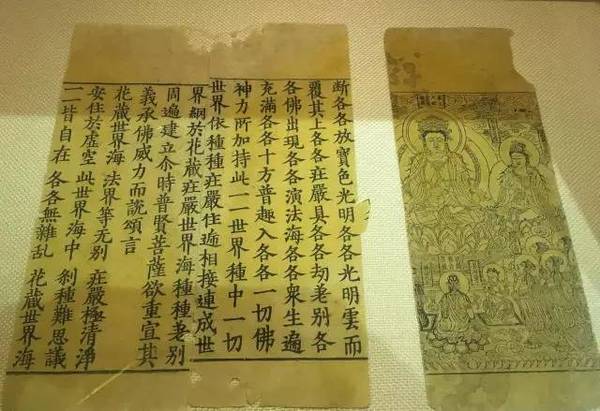 斷各各放寶色光明各各光明雲而
覆其上各各莊嚴具各各劫差別各
各佛出現各各演法海各各衆生遍
充滿各各十方普趣入各各一切佛
神力所加持此一一世界種中一切
世界依種種莊嚴住遞相接連成世
界網於花藏莊嚴世界海種種差別
周遍建立尒時普賢菩薩欲重宣其
義承佛威力而說頌言
花藏世界海 法界等无別 莊嚴極清淨
安住於虛空 此世界海中 剎種難思議
一一皆自在 各各無雜乱 花藏世界海